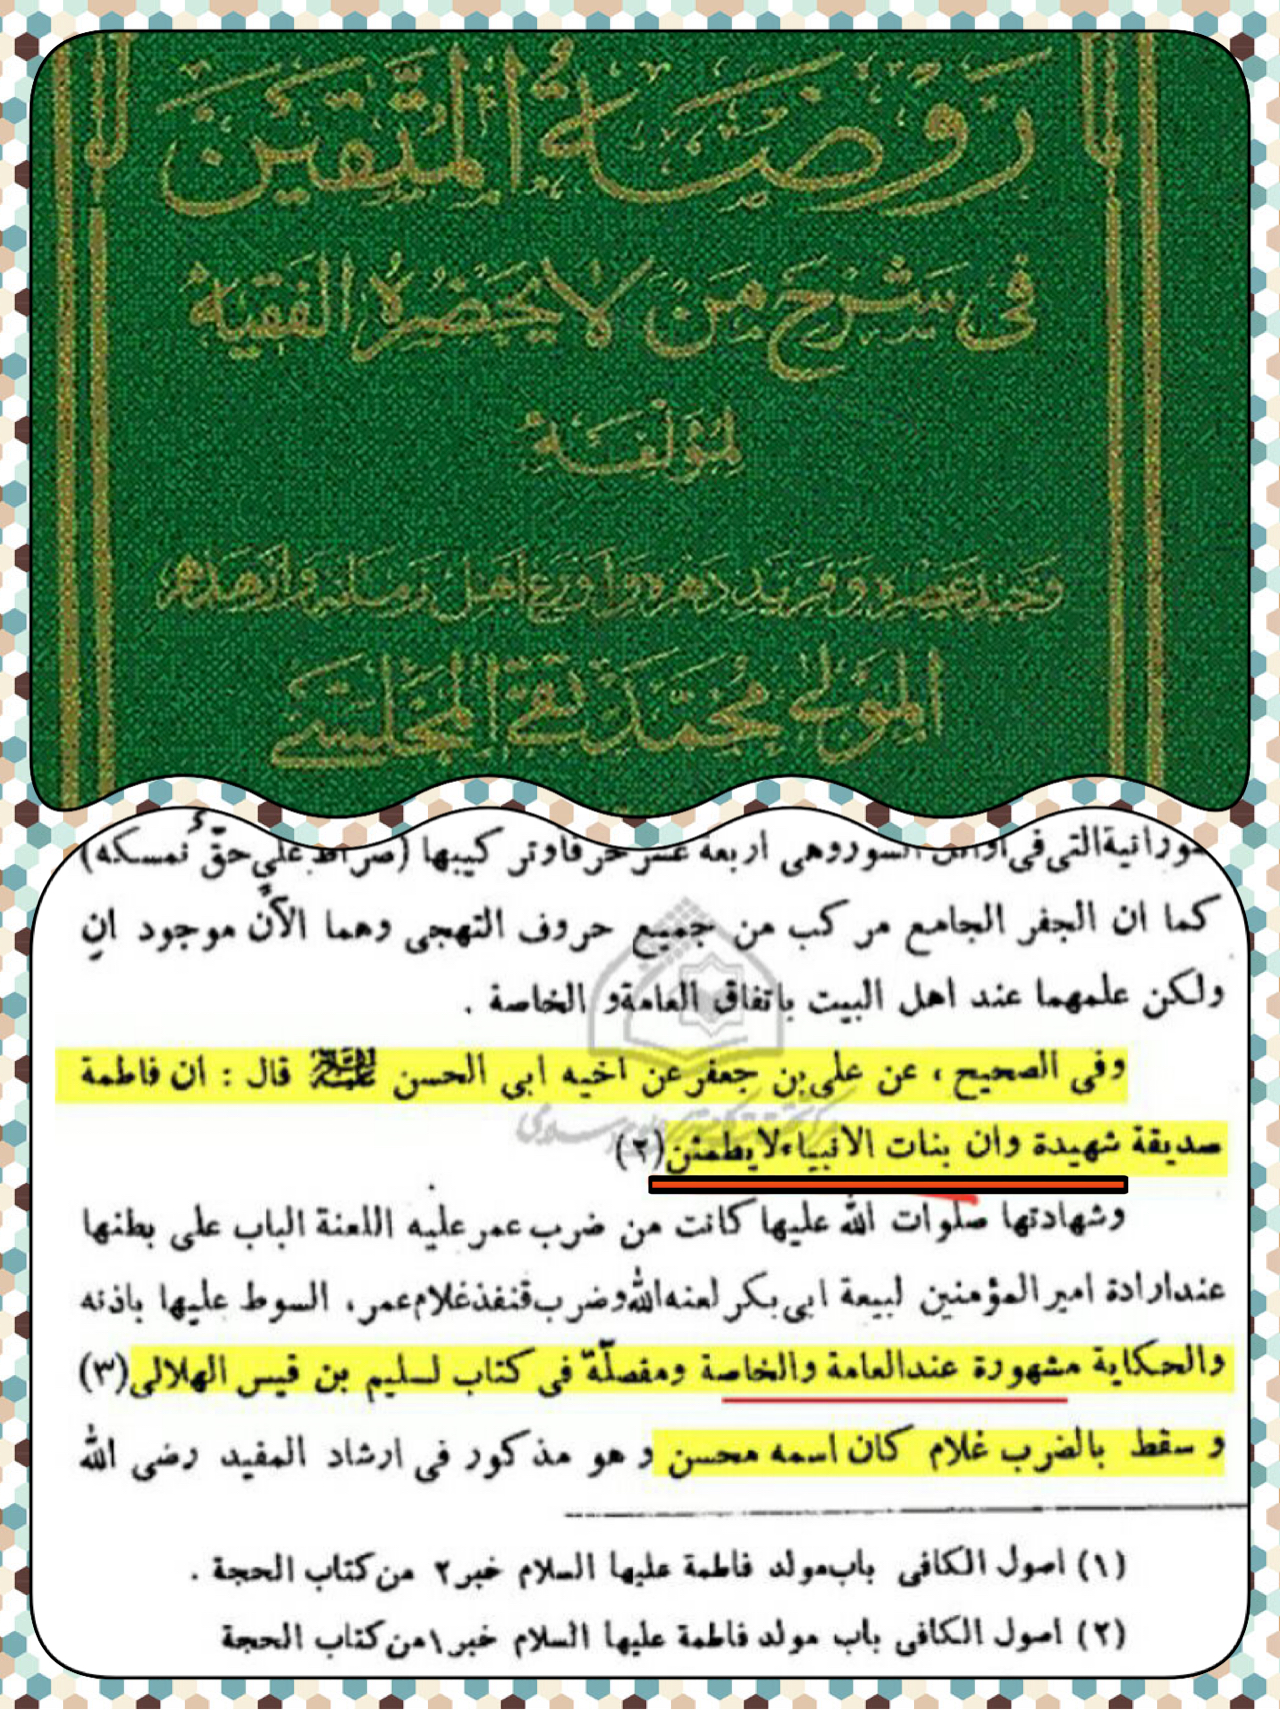 روضة المتقين
فى شرح من لا يحضره الفقيه
لمؤلفه
وحيد عصره وفريد دهره اورع اهل زمانه وازهدهم
المولى محمد تقى المجلسى
التى فى اوائل السور وهى اربعة عشر حرفا وتركيبها (صراط على حقّ نمسكه)
كما ان الجفر الجامع مركب من جميع حروف التهجى وهما الآن موجود ان
ولكن علمهما عند اهل البيت باتفاق العامة و الخاصة .
وفى الصحيح ، عن على بن جعفر عن اخيه ابى الحسن عليه السلام قال : ان فاطمة
صديقة شهيدة وان بنات الانبياء لا يطمئن (٢)
وشهادتها صلوات الله عليها كانت من ضرب عمر عليه اللعنة الباب على بطنها
عند ارادة امير المؤمنين لبيعة ابى بكر لعنه الله وضرب قنفذ غلام عمر، السوط عليها باذنه
والحكاية مشهورة عند العامة والخاصة ومفصلّة فى كتاب لسليم بن قيس الهلالى (٣)
و سقط بالضرب غلام كان اسمه محسن و هو مذكور فى ارشاد المفيد رضى الله
(١) اصول الكافى باب مولد فاطمة عليها السلام خبر ٢ من كتاب الحجة .
(٢) اصول الكافى باب مولد فاطمة عليها السلام خبر ١ من كتاب الحجة